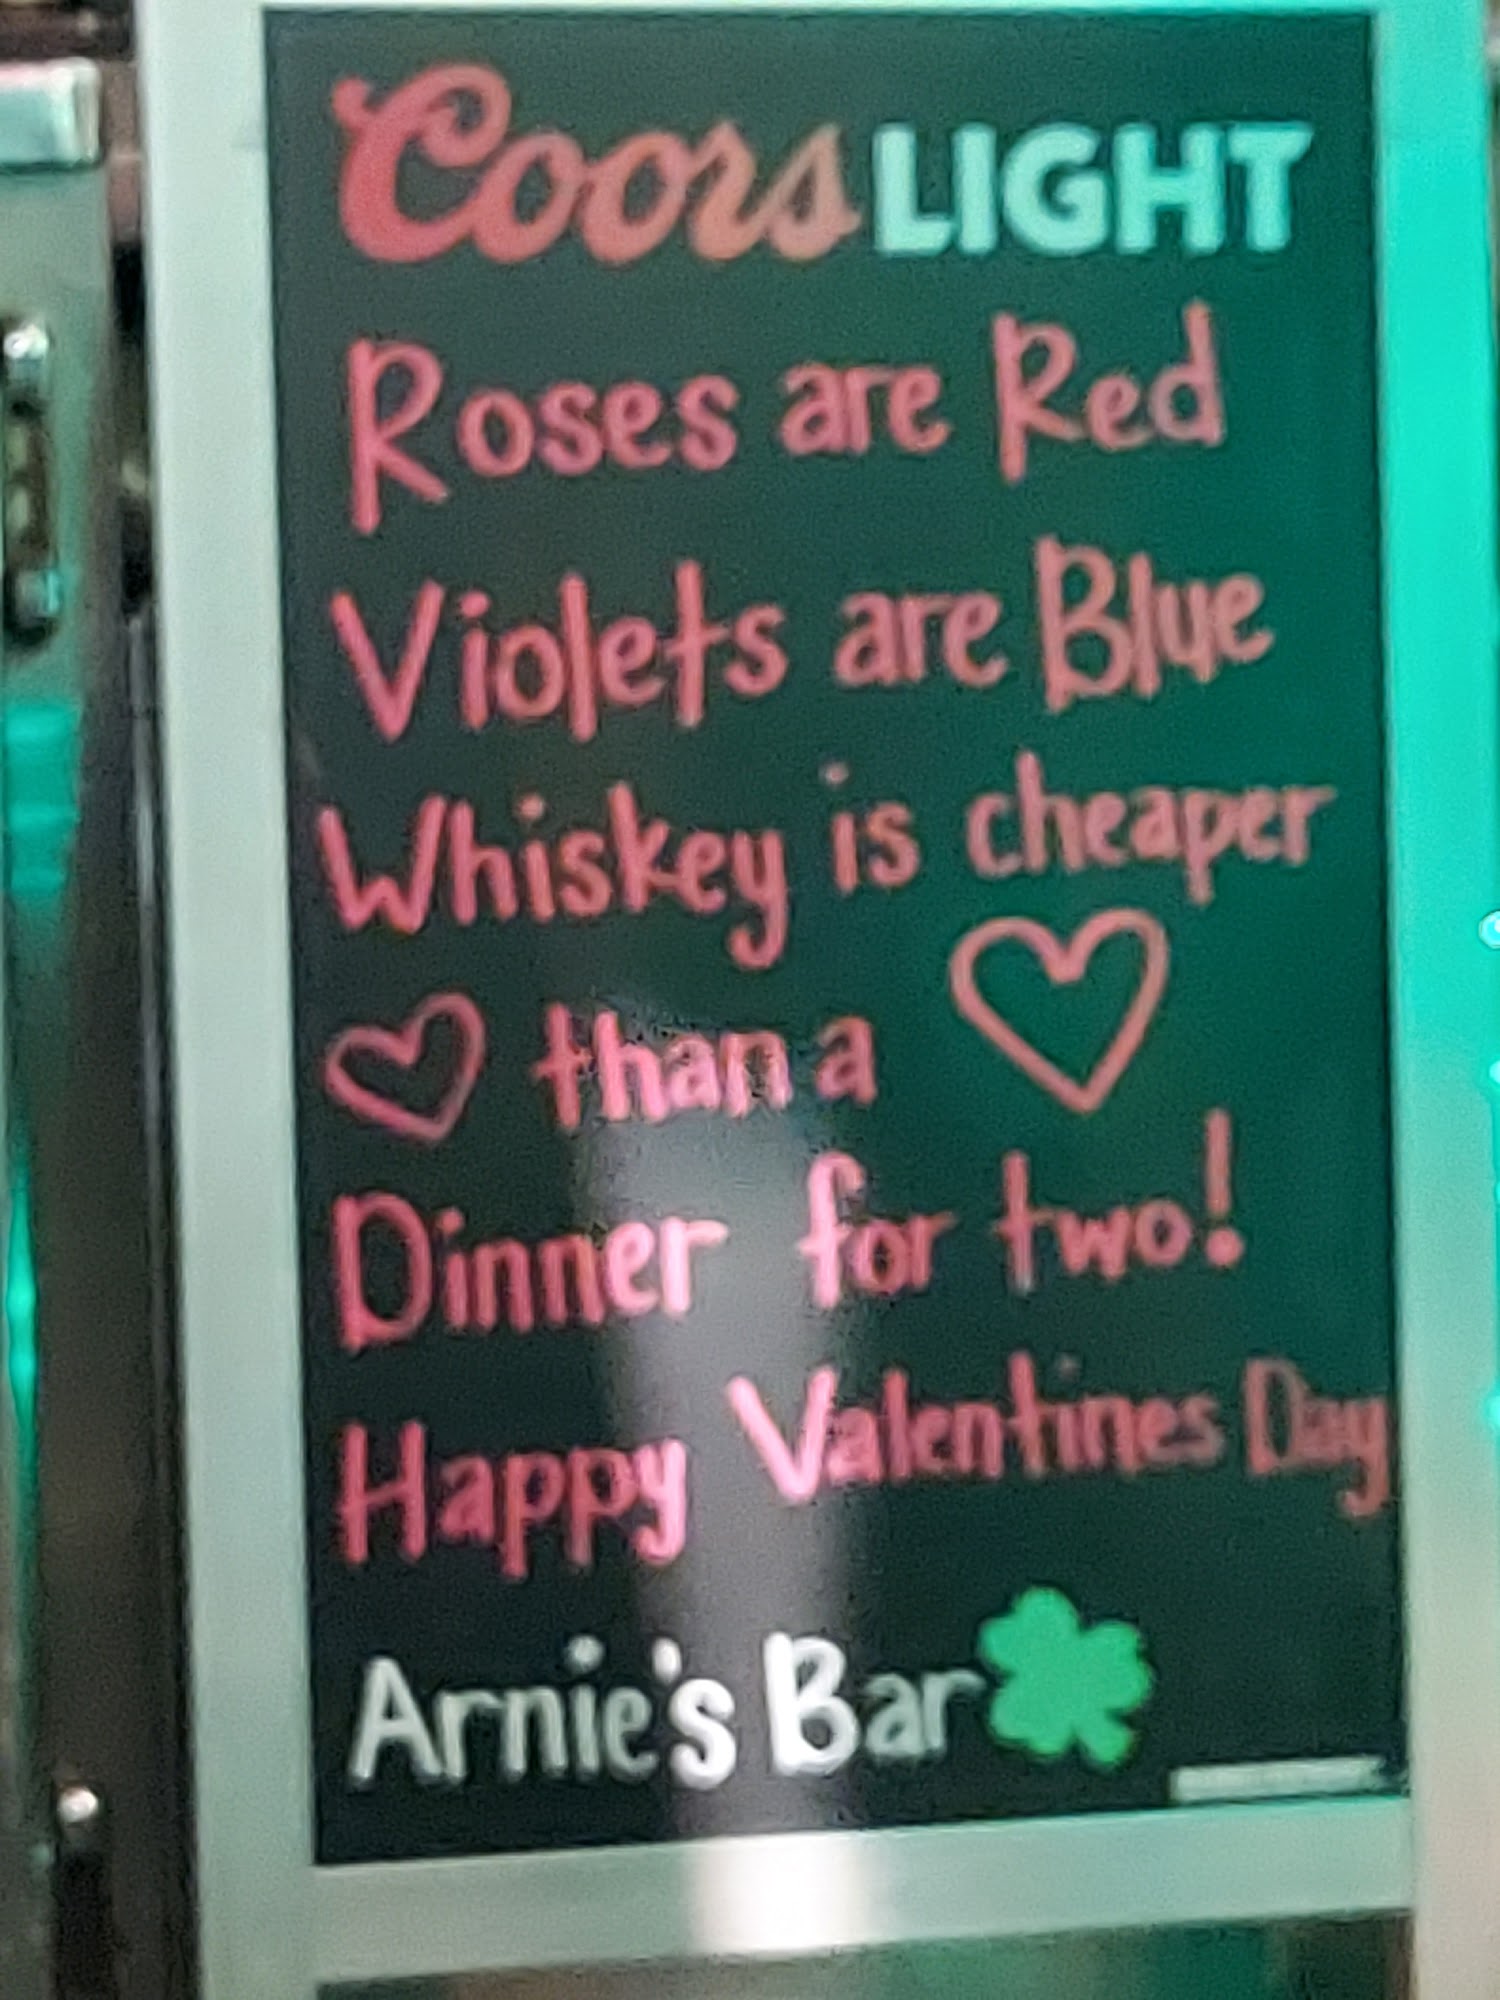 Coors LIGHT
Roses are Red
Violets are Blue
Whiskey is cheaper
than a
Dinner for two!
Happy Valentines Day
Arnie's Bar